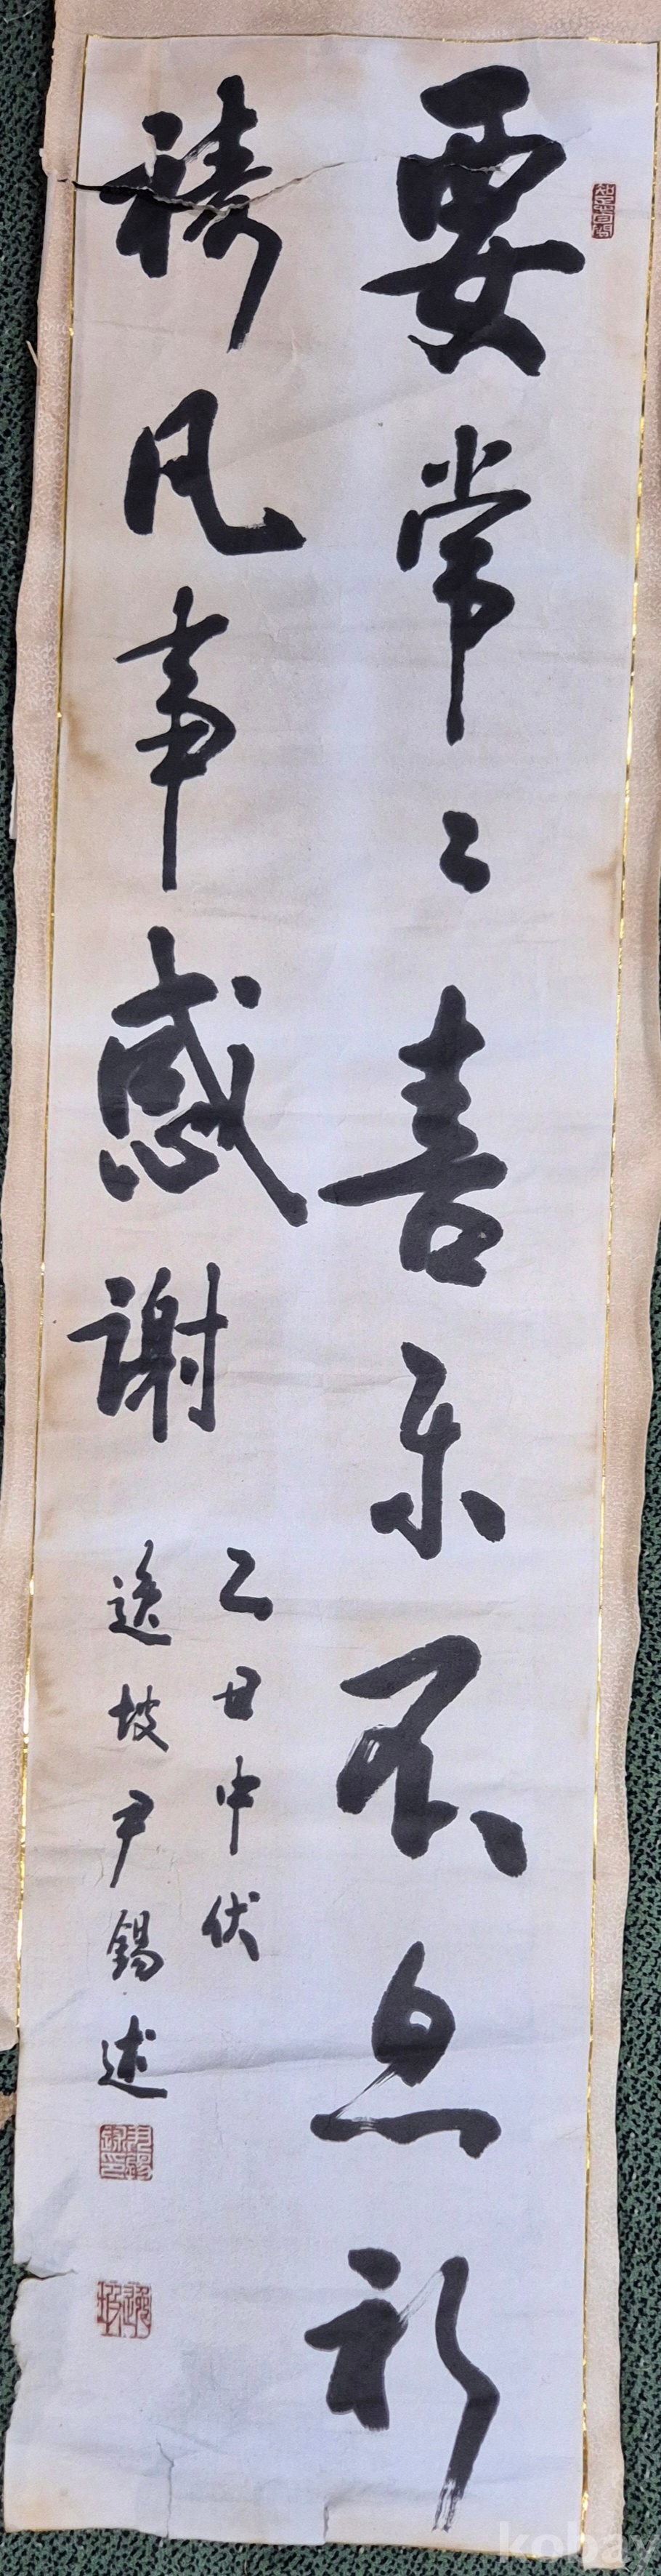 要常々喜乐不息祈
祷凡事感谢
乙丑中伏
逸坡尹錫述
kobay